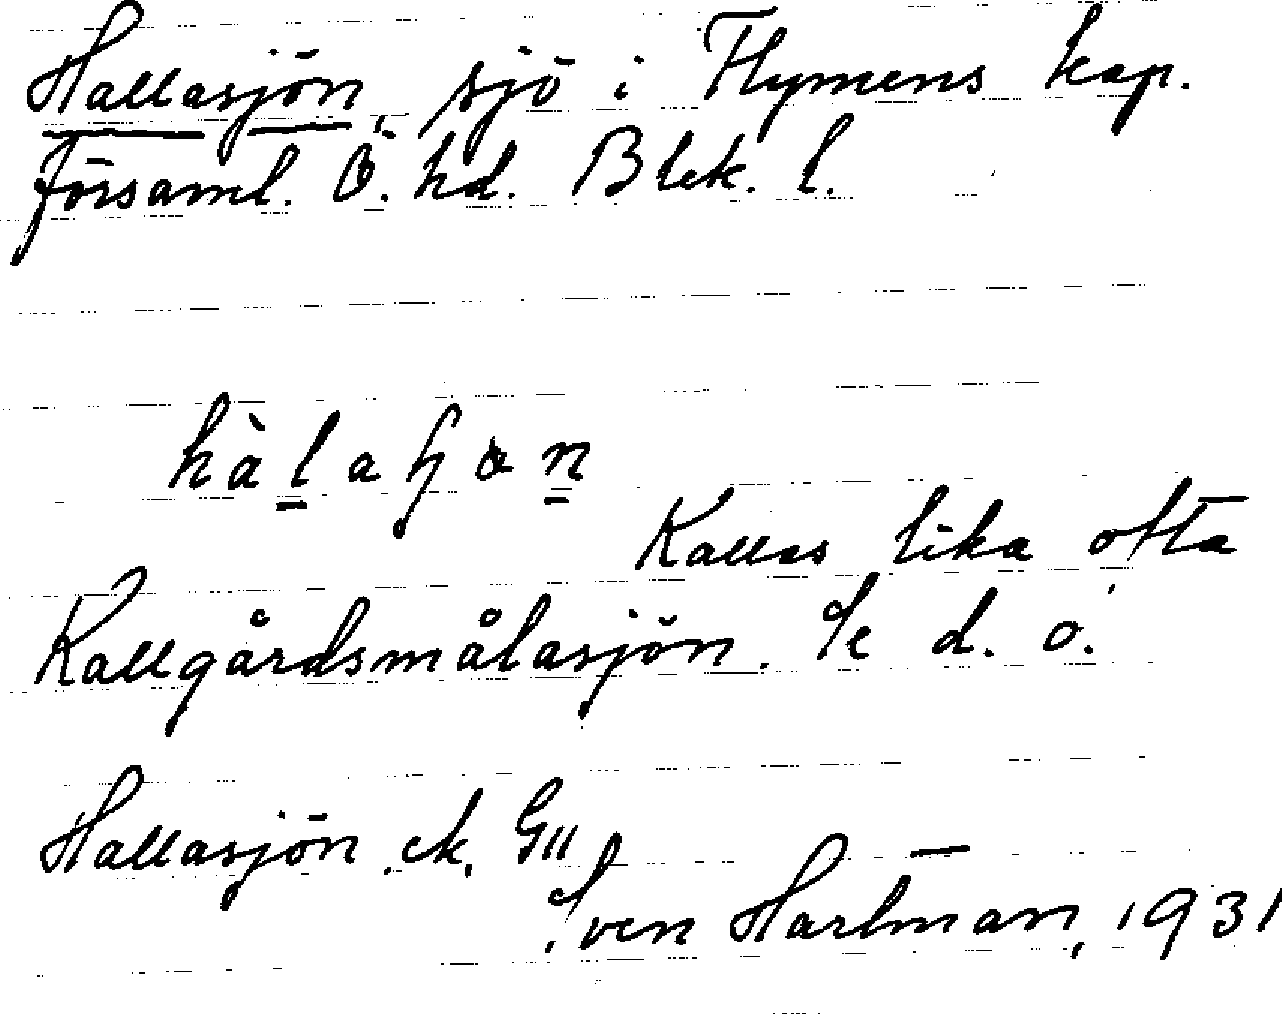 Hallasjön, sjö i Flymens kap.
församl. Ö. hd. Blek. l.
Kallas lika ofta
Kallgårdsmålasjön. Se d. o.
Hallasjön. ek. G11
Sven Hartman, 1931